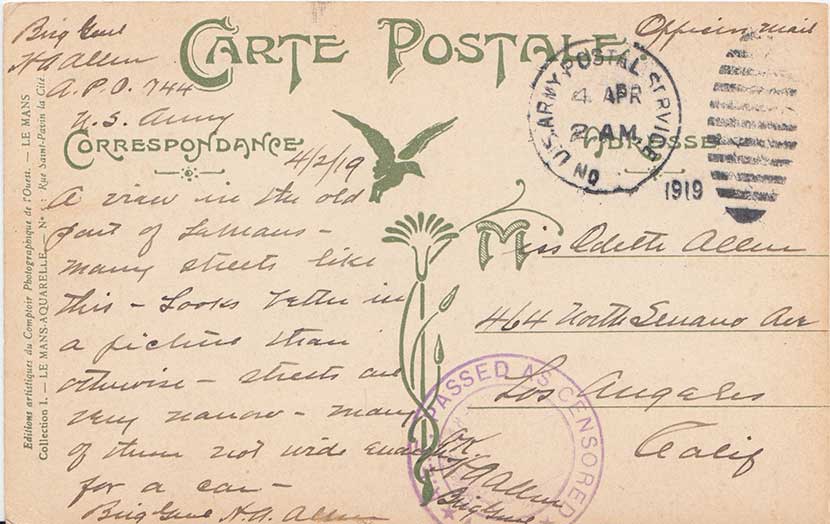 Brig Genl
H A Allen
A.P.O. 744
U.S. Army
Officers Mail
CARTE POSTALE
CORRESPONDANCE
ADRESSE
ON U.S. ARMY POSTAL SERVICE
4 APR
2 AM
1919
4/2/19
A view in the old
part of LeMans -
many streets like
this - Looks better in
a picture than
otherwise - streets are
very narrow - many
of them not wide enough
for a car -
Brig Genl H.A. Allen
Miss Odette Allen
464 North Serrano Ave
Los Angeles
Calif
PASSED AS CENSORED
OK
H A Allen
Brig Genl
Editions artistiques du Comptoir Photographique de l'Ouest. — LE MANS
Collection I. — LE MANS-AQUARELLE. — N° : Rue Saint-Pavin la Cité